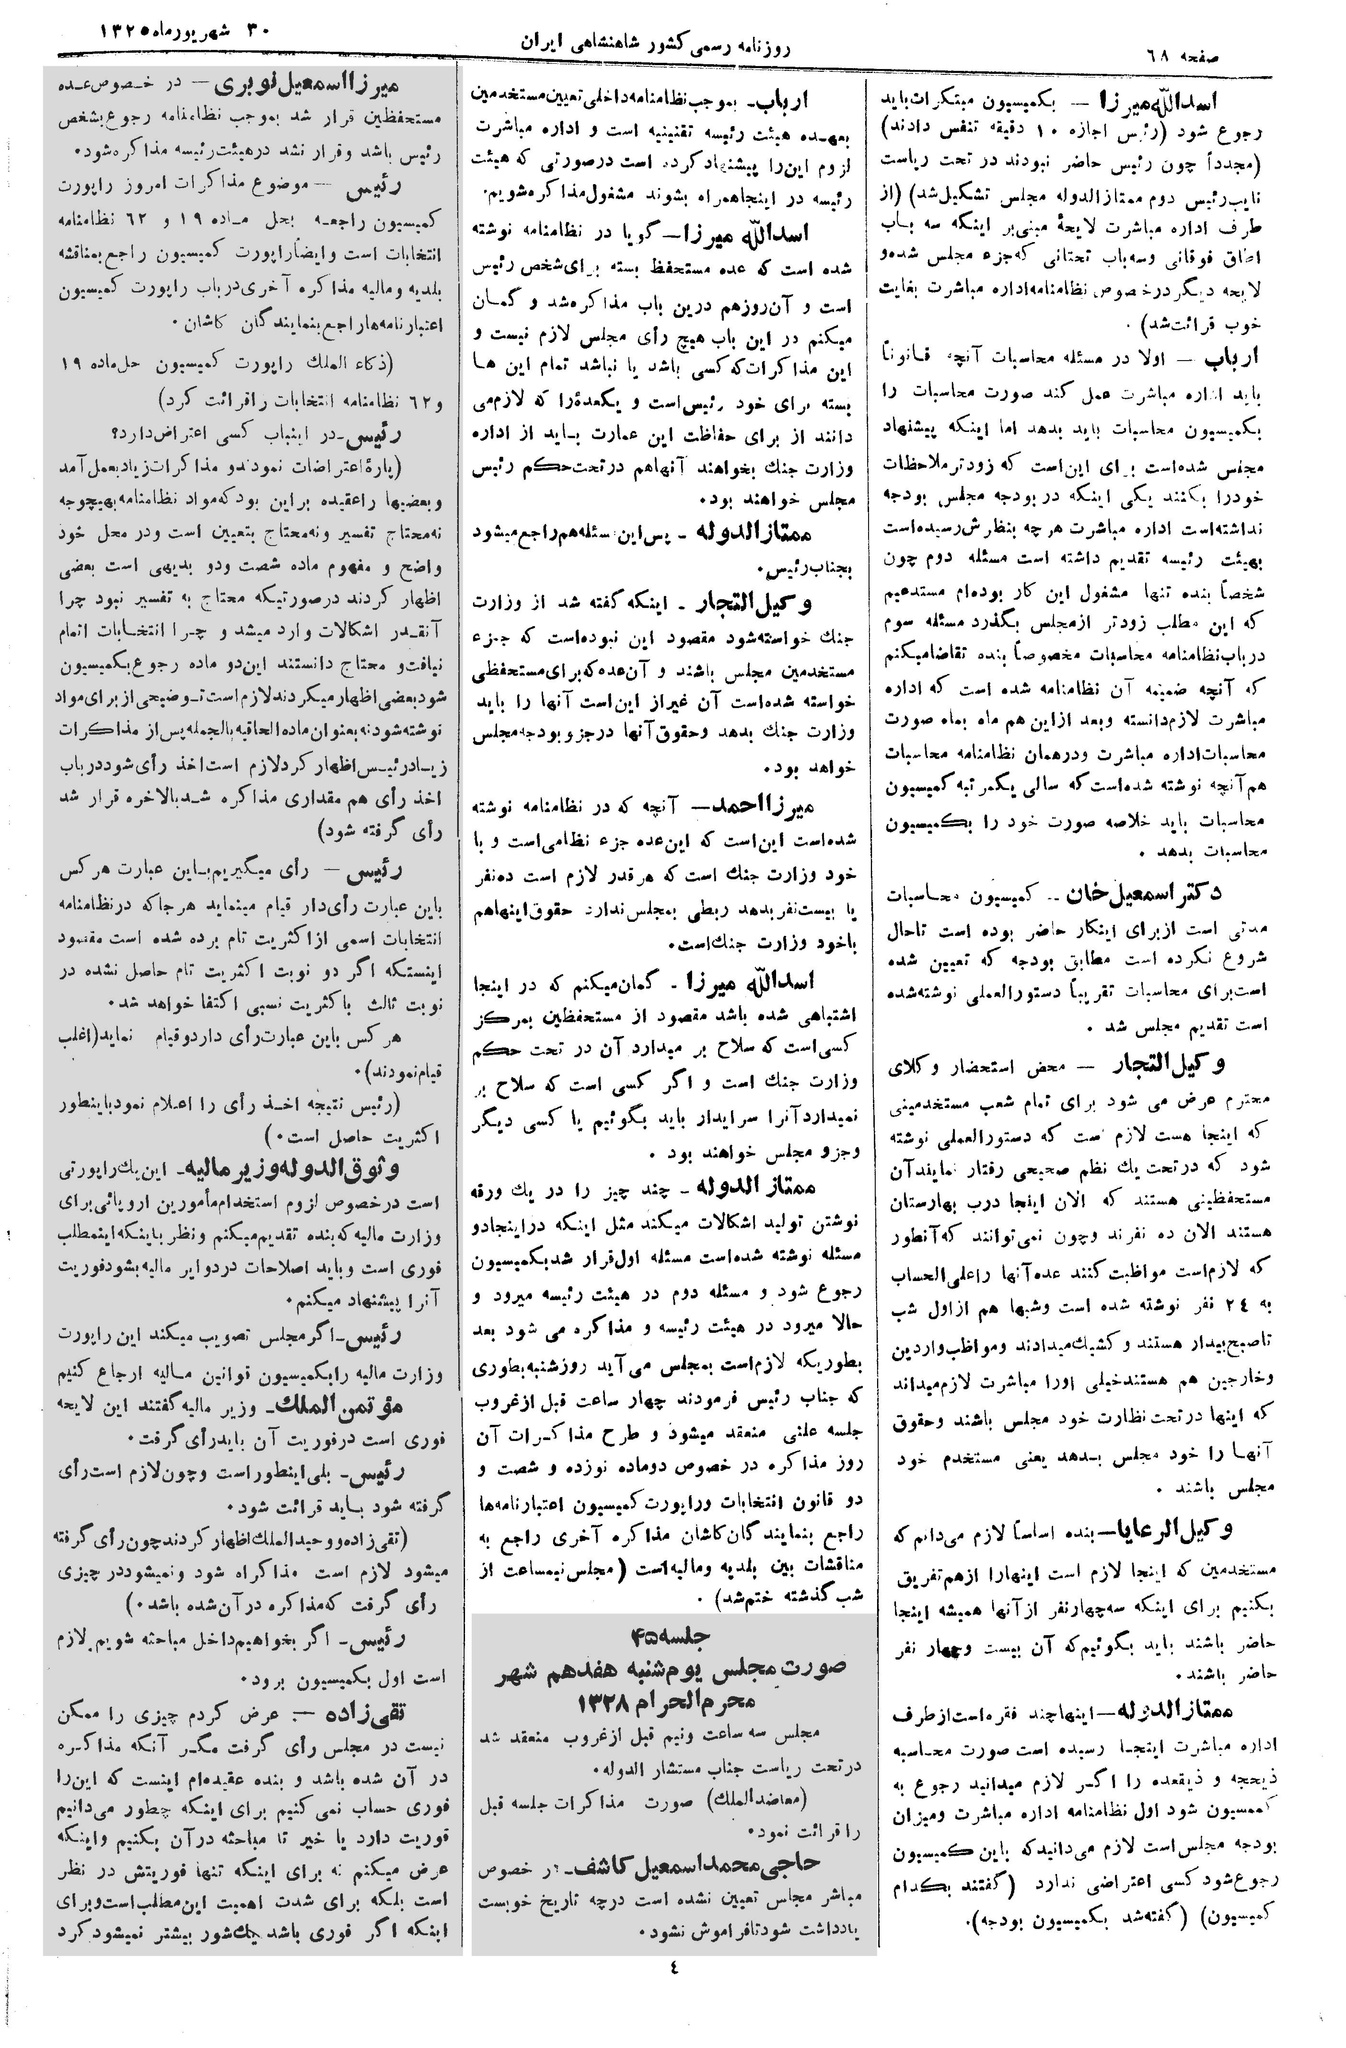 صفحه ٦٨
روزنامه رسمی کشور شاهنشاهی ایران
٣٠ شهریورماه ١٣٢٥
اسدالله میرزا — بکمیسیون مبتکرات باید
رجوع شود (رئیس اجازه ١٠ دقیقه تنفس دادند)
(مجدداً چون رئیس حاضر نبودند در تحت ریاست
نایب رئیس دوم ممتازالدوله مجلس تشکیل شد) (از
طرف اداره مباشرت لایحهٔ مبنی بر اینکه سه باب
اطاق فوقانی وسه باب تحتانی که جزء مجلس شده و
لایحه دیگر درخصوص نظامنامه اداره مباشرت بغایت
خوب قرائت شد).
ارباب — اولا در مسئله محاسبات آنچه قانوناً
باید اداره مباشرت عمل کند صورت محاسبات را
بکمیسیون محاسبات باید بدهد اما اینکه پیشنهاد
مجلس شده است برای این است که زودتر ملاحظات
خود را بکنند یکی اینکه در بودجه مجلس بودجه
نداشته است اداره مباشرت هرچه بنظرش رسیده است
بهیئت رئیسه تقدیم داشته است مسئله دوم چون
شخصاً بنده تنها مشغول این کار بوده‌ام مستدعیم
که این مطلب زودتر از مجلس بگذرد مسئله سوم
درباب نظامنامه محاسبات مخصوصاً بنده تقاضا میکنم
که آنچه ضمیمه آن نظامنامه شده است که اداره
مباشرت لازم دانسته و بعد از این هم ماه بماه صورت
محاسبات اداره مباشرت ودرهمان نظامنامه محاسبات
هم آنچه نوشته شده است که سالی یکمرتبه کمیسیون
محاسبات باید خلاصه صورت خود را بکمیسیون
محاسبات بدهد .
دکتر اسمعیل خان — کمیسیون محاسبات
مدتی است از برای اینکار حاضر بوده است تاحال
شروع نکرده است مطابق بودجه که تعیین شده
است برای محاسبات تقریباً دستورالعملی نوشته شده
است تقدیم مجلس شد .
وکیل التجار — محض استحضار وکلای
محترم عرض می شود برای تمام شعب مستخدمینی
که اینجا هست لازم است که دستورالعملی نوشته
شود که در تحت یك نظم صحیحی رفتار نمایند آن
مستحفظینی هستند که الان اینجا درب بهارستان
هستند الان ده نفرند وچون نمی توانند که آنطور
که لازم است مواظبت کنند عده آنها را علی الحساب
به ٢٤ نفر نوشته شده است وشبها هم از اول شب
تاصبح بیدار هستند وکشیك میدادند ومواظب واردین
وخارجین هم هستند خیلی اورا مباشرت لازم میداند
که اینها در تحت نظارت خود مجلس باشند وحقوق
آنها را خود مجلس بدهد یعنی مستخدم خود
مجلس باشند .
وکیل الرعایا — بنده اساساً لازم می دانم که
مستخدمین که اینجا لازم است اینهارا از هم تفریق
بکنیم برای اینکه سه چهار نفر از آنها همیشه اینجا
حاضر باشند باید بگوئیم که آن بیست وچهار نفر
حاضر باشند.
ممتازالدوله — اینها چند فقره است از طرف
اداره مباشرت اینجا رسیده است صورت محاسبه
ذیحجه و ذیقعده را اگر لازم میدانید رجوع به
کمیسیون شود اول نظامنامه اداره مباشرت ومیزان
بودجه مجلس است لازم می دانید که باین کمیسیون
رجوع شود کسی اعتراضی ندارد (گفتند بکدام
کمیسیون) (گفته شد بکمیسیون بودجه).
ارباب — بموجب نظامنامه داخلی تعیین مستخدمین
بعهده هیئت رئیسه تقنینیه است و اداره مباشرت
لزوم این را پیشنهاد کرده است درصورتی که هیئت
رئیسه در اینجا همراه بشوند مشغول مذاکره شویم.
اسدالله میرزا — گویا در نظامنامه نوشته
شده است که عده مستحفظ بسته برای شخص رئیس
است و آن روز هم درین باب مذاکره شد و گمان
میکنم در این باب هیچ رأی مجلس لازم نیست و
این مذاکرات که کسی باشد یا نباشد تمام این ها
بسته برای خود رئیس است و یکعدهٔ را که لازم می
دانند از برای حفاظت این عمارت باید از اداره
وزارت جنك بخواهند آنها هم در تحت حکم رئیس
مجلس خواهند بود.
ممتازالدوله — پس این مسئله هم راجع میشود
بجناب رئیس.
وکیل التجار — اینکه گفته شد از وزارت
جنك خواسته شود مقصود این نبوده است که جزء
مستخدمین مجلس باشند و آن عده که برای مستحفظی
خواسته شده است آن غیر از این است آنها را باید
وزارت جنك بدهد وحقوق آنها درجزو بودجه مجلس
خواهد بود.
میرزا احمد — آنچه که در نظامنامه نوشته
شده است این است که این عده جزء نظامی است و با
خود وزارت جنك است که هرقدر لازم است ده نفر
یا بیست نفر بدهد ربطی بمجلس ندارد حقوق اینها هم
با خود وزارت جنك است.
اسدالله میرزا — گمان میکنم که در اینجا
اشتباهی شده باشد مقصود از مستحفظین بمرکز
کسی است که سلاح بر میدارد آن در تحت حکم
وزارت جنك است و اگر کسی است که سلاح بر
نمیدارد آنرا سرایدار باید بگوئیم یا کسی دیگر
وجزو مجلس خواهند بود .
ممتازالدوله — چند چیز را در یك ورقه
نوشتن تولید اشکالات میکند مثل اینکه در اینجا دو
مسئله نوشته شده است مسئله اول قرار شد بکمیسیون
رجوع شود و مسئله دوم در هیئت رئیسه میرود و
حالا میرود در هیئت رئیسه و مذاکره می شود بعد
بطوریکه لازم است بمجلس می آید روز شنبه بطوری
که جناب رئیس فرمودند چهار ساعت قبل از غروب
جلسه علنی منعقد میشود و طرح مذاکرات آن
روز مذاکره در خصوص دو ماده نوزده و شصت و
دو قانون انتخابات و راپورت کمیسیون اعتبارنامه‌ها
راجع بنمایندگان کاشان مذاکره آخری راجع به
مناقشات بین بلدیه ومالیه است (مجلس نیمساعت از
شب گذشته ختم شد) .
جلسه ۴۵
صورت مجلس یوم شنبه هفدهم شهر
محرم الحرام ١٣٢٨
مجلس سه ساعت ونیم قبل از غروب منعقد شد
در تحت ریاست جناب مستشار الدوله.
(معاضدالملك) صورت مذاکرات جلسه قبل
را قرائت نمود.
حاجی محمد اسمعیل کاشف — در خصوص
مباشر مجلس تعیین نشده است درچه تاریخ خوبست
یادداشت شود تا فراموش نشود.
میرزا اسمعیل نوبری — در خصوص عده
مستحفظین قرار شد بموجب نظامنامه رجوع بشخص
رئیس باشد وقرار نشد در هیئت رئیسه مذاکره شود.
رئیس — موضوع مذاکرات امروز راپورت
کمیسیون راجعه بحل ماده ١٩ و ٦٢ نظامنامه
انتخابات است وایضاً راپورت کمیسیون راجع بمناقشه
بلدیه ومالیه مذاکره آخری درباب راپورت کمیسیون
اعتبارنامه‌ها راجع بنمایندگان کاشان .
(ذکاء الملك راپورت کمیسیون حل ماده ١٩
و ٦٢ نظامنامه انتخابات را قرائت کرد)
رئیس — در اینباب کسی اعتراض دارد؟
(پارهٔ اعتراضات نمودند و مذاکرات زیاد بعمل آمد
و بعضیها را عقیده براین بود که مواد نظامنامه بهیچوجه
نه محتاج تفسیر ونه محتاج بتعیین است ودر محل خود
واضح و مفهوم ماده شصت ودو بدیهی است بعضی
اظهار کردند درصورتیکه محتاج به تفسیر نبود چرا
آنقدر اشکالات وارد میشد و چرا انتخابات اتمام
نیافت و محتاج دانستند این دو ماده رجوع بکمیسیون
شود بعضی اظهار میکردند لازم است توضیحی از برای مواد
نوشته شود نه بعنوان ماده الحاقیه بالجمله پس از مذاکرات
زیاد رئیس اظهار کرد لازم است اخذ رأی شود درباب
اخذ رأی هم مقداری مذاکره شد بالاخره قرار شد
رأی گرفته شود)
رئیس — رأی میگیریم باین عبارت هرکس
باین عبارت رأی دار قیام مینماید هرجا که در نظامنامه
انتخابات اسمی از اکثریت تام برده شده است مقصود
اینستکه اگر دو نوبت اکثریت تام حاصل نشده در
نوبت ثالث با کثریت نسبی اکتفا خواهد شد.
هرکس باین عبارت رأی دارد و قیام نماید (اغلب
قیام نمودند).
(رئیس نتیجه اخذ رأی را اعلام نمود باینطور
اکثریت حاصل است.)
وثوق الدوله وزیر مالیه — این یك راپورتی
است درخصوص لزوم استخدام مأمورین اروپائی برای
وزارت مالیه که بنده تقدیم میکنم و نظر باینکه اینمطلب
فوری است وباید اصلاحات در دوایر مالیه بشود فوریت
آنرا پیشنهاد میکنم.
رئیس — اگر مجلس تصویب میکند این راپورت
وزارت مالیه را بکمیسیون قوانین مالیه ارجاع کنیم
مؤتمن الملك — وزیر مالیه گفتند این لایحه
فوری است درفوریت آن باید رأی گرفت.
رئیس — بلی اینطور است وچون لازم است رأی
گرفته شود باید قرائت شود.
(تقی زاده و وحیدالملك اظهار کردند چون رأی گرفته
میشود لازم است مذاکراه شود ونمیشود در چیزی
رأی گرفت که مذاکره در آن شده باشد.)
رئیس — اگر بخواهیم داخل مباحثه شویم لازم
است اول بکمیسیون برود.
تقی زاده — عرض کردم چیزی را ممکن
نیست در مجلس رأی گرفت مگر آنکه مذاکره
در آن شده باشد و بنده عقیده‌ام اینست که این را
فوری حساب نمی کنیم برای اینکه چطور می دانیم
فوریت دارد یا خیر تا مباحثه در آن بکنیم واینکه
عرض میکنم نه برای اینکه تنها فوریتش در نظر
است بلکه برای شدت اهمیت این مطلب است وبرای
اینکه اگر فوری باشد یك شور بیشتر نمیشود کرد
٤